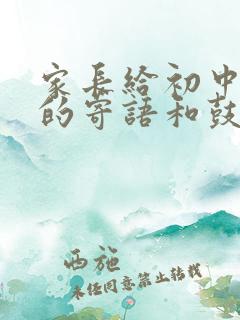 家长给初中
的寄语和鼓
西施
未经同意禁止转载